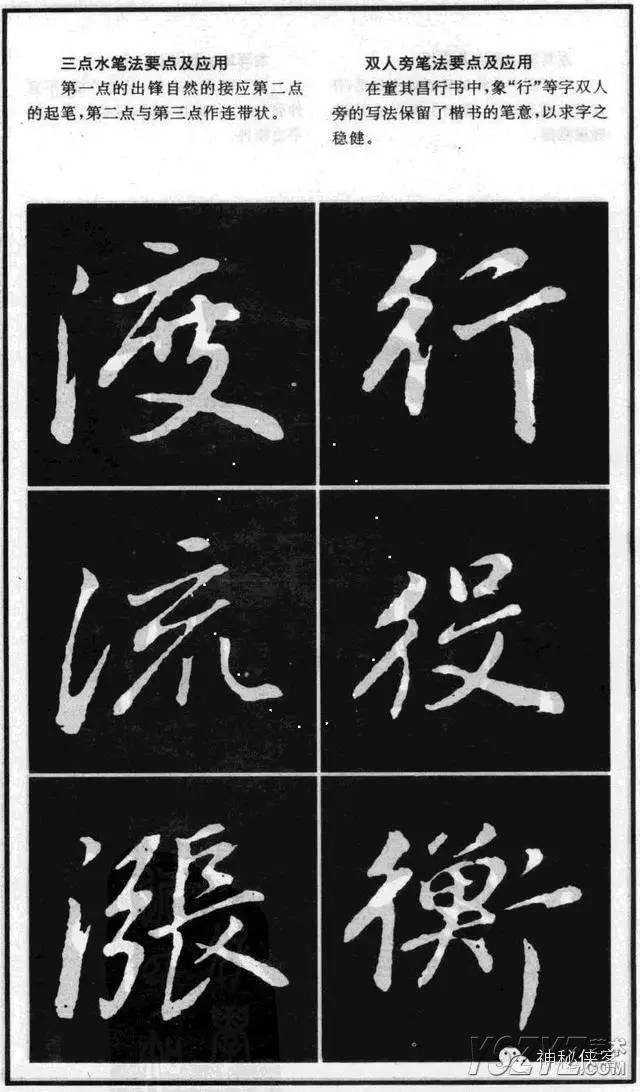 三点水笔法要点及应用
第一点的出锋自然的接应第二点
的起笔，第二点与第三点作连带状。
双人旁笔法要点及应用
在董其昌行书中，象“行”等字双人
旁的写法保留了楷书的笔意，以求字之
稳健。
渡
行
流
役
漲
衡
神秘侠客